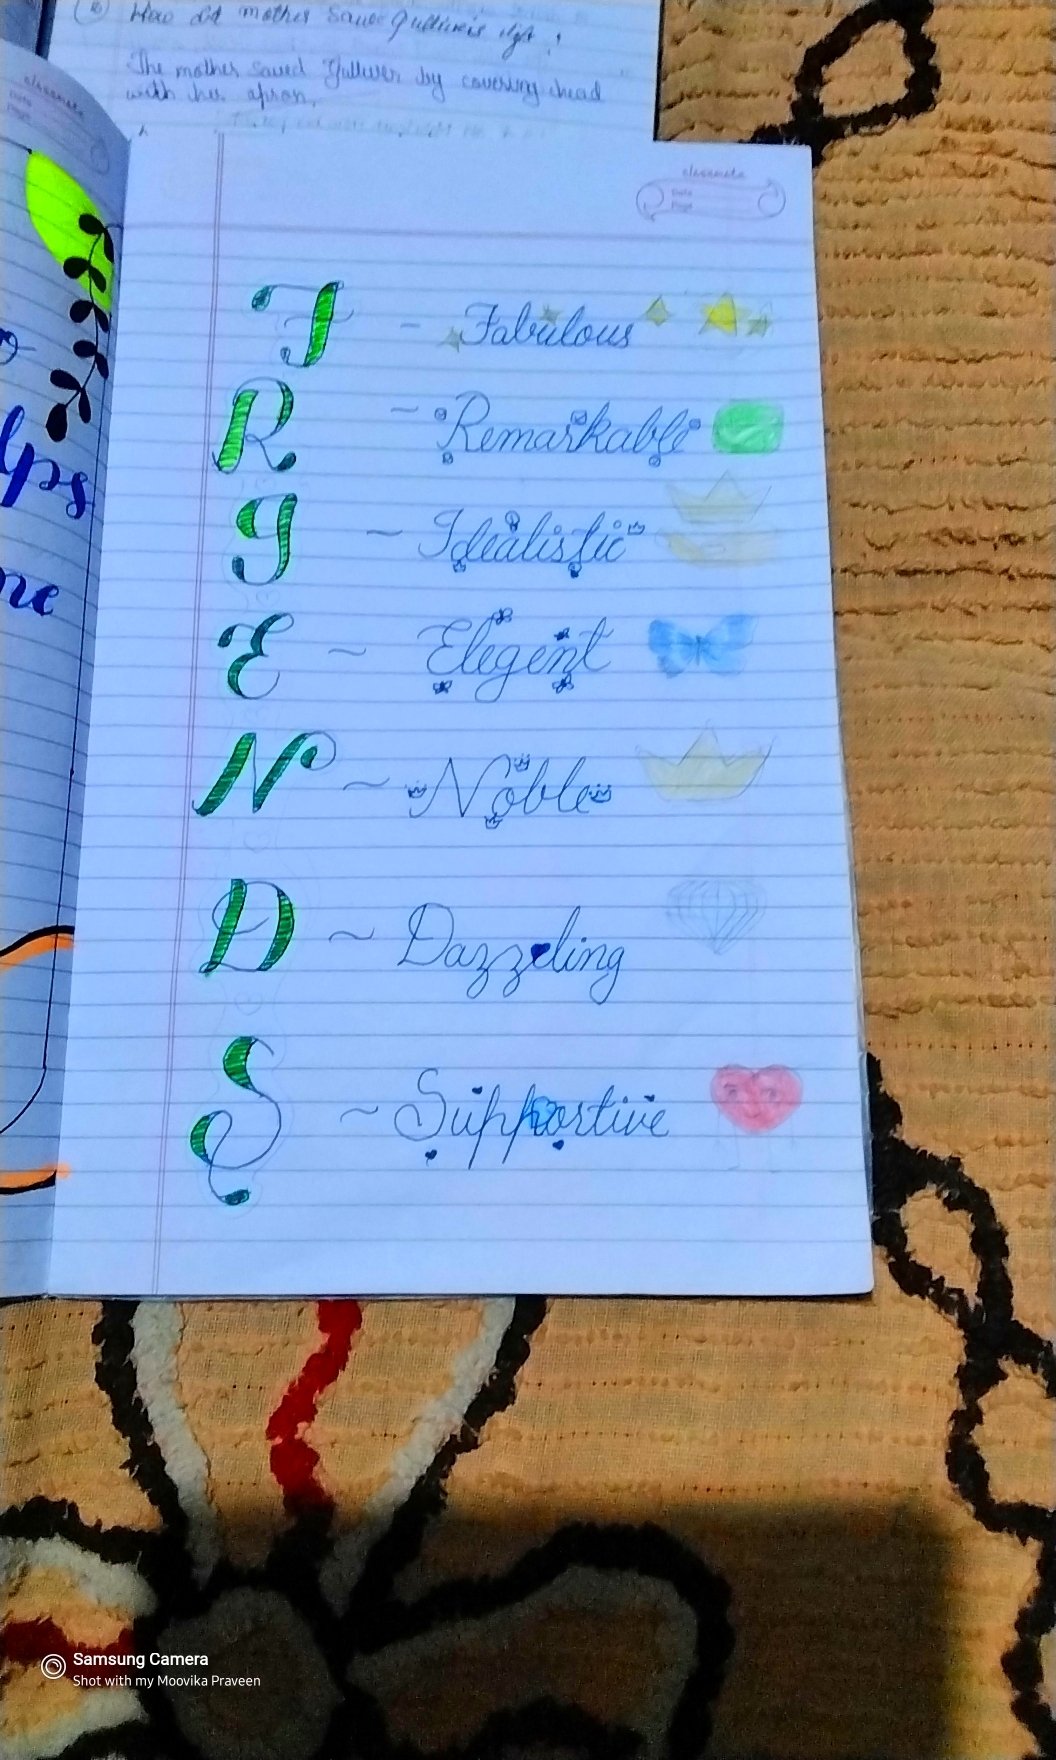 How did mother save Gulliver's life?
The mother saved Gulliver by covering head
with her apron.
classmate
Date
Page
classmate
Date
Page
F - Fabulous
R ~ Remarkable
I ~ Idealistic
E ~ Elegent
N ~ Noble
D ~ Dazzling
S ~ Supportive
lps
me
Samsung Camera
Shot with my Moovika Praveen